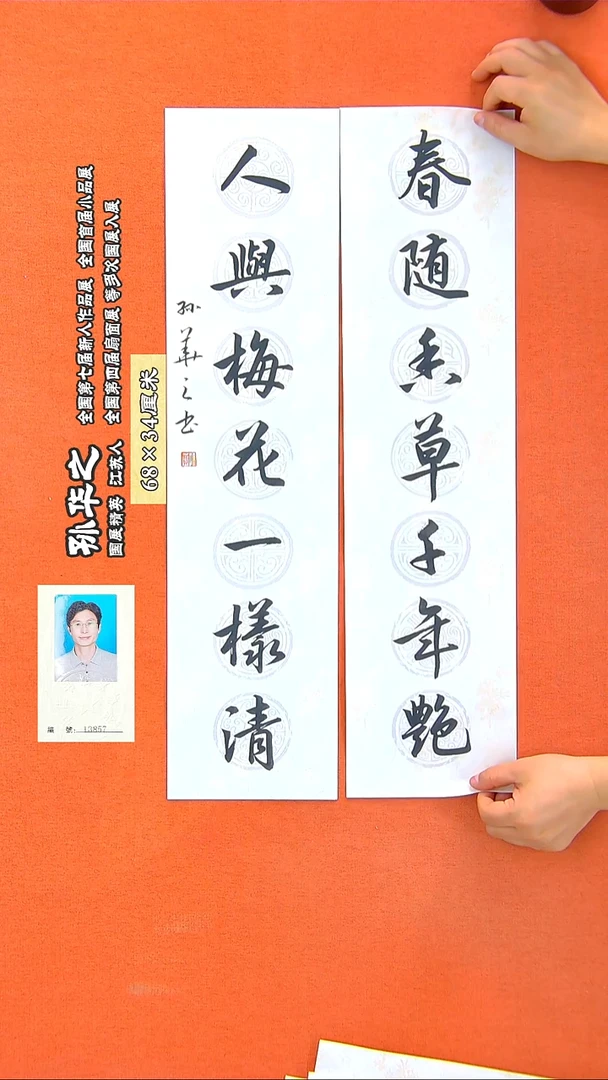 春随香草千年艳
人與梅花一樣清
孙華之书
68×34厘米
孙华之
国展精英 江苏人
全国第七届新人作品展 全国首届小品展
全国第四届扇面展 等多次国展入展
編 號: 13857